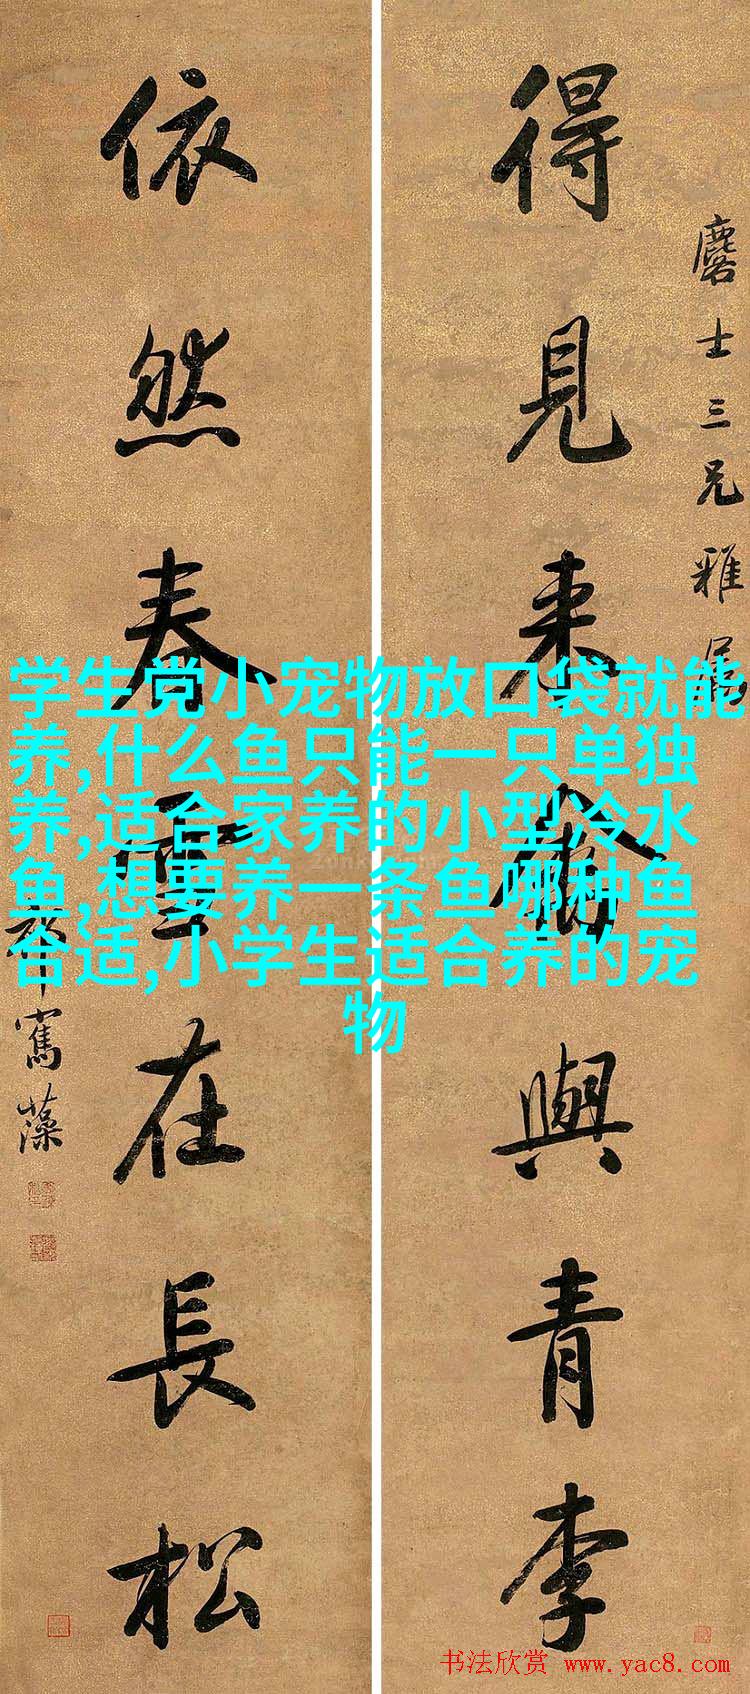 麐士三兄雅屬
得見来禽與青李
依然春雪在長松
寯藻
学生党小宠物放口袋就能
养,什么鱼只能一只单独
养,适合家养的小型冷水
鱼,想要养一条鱼哪种鱼
合适,小学生适合养的宠
物
书法欣赏 www.yac8.com